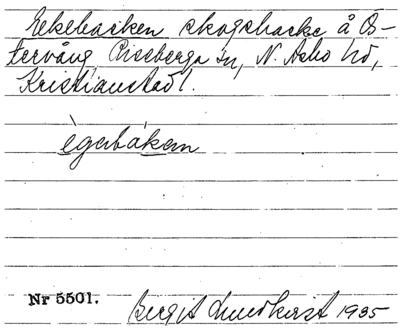 Eekebacken skogsbacke å Ös-
tervång Risseberga sn, N. Asbo hd,
Kristianstad l.
ègerbákem
Nr 5501.
Bergit Lundkvist 1935